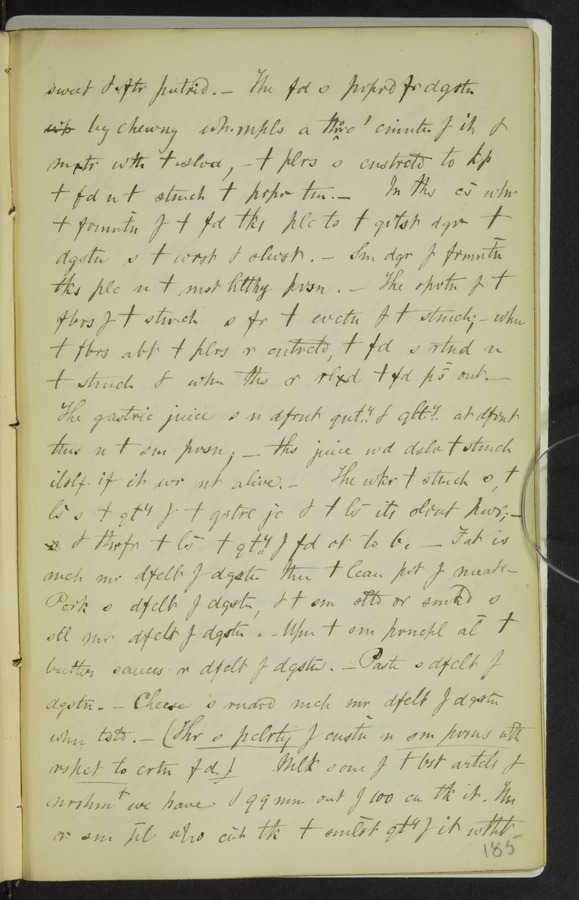 sweet & aftr putrid. — The fd s preprd fr dgstn
by chewng wh. mpls a thro' cmmtn f it, &
mxtr wth t slva, — t plrs s cnstrctd to kp
t fd n t stmch t propr tm. — In ths cs whr
t frmnttn f t fd tks plc to t grtst dgr t
dgstn s t worst & slwst. — Sm dgr f frmnttn
tks plc n t most hlthy prsn. — The oprtn f t
fbrs f t stmch s fr t evctn f t stmch; — when
t fbrs abt t plrs r cntrctd, t fd s rtnd n
t stmch & whn ths r rlxd t fd ps out. —
The gastric juice s n dfrnt qnty & qlty at dfrnt
tms n t sm prsn; — ths juice wd dslv t stmch
itslf if it wr nt alive. — The wkr t stmch s, t
ls s t qty f t gstrc jc & t ls its slvnt pwr; —
& thrfr t ls t qty f fd ot to be — Fat is
mch mr dfclt f dgstn thn t lean prt f meat —
Pork s dfclt f dgstn, & t sm sltd or smkd s
stl mr dfclt f dgstn. — Upn t sm prncpl al t
butter sauces r dfclt f dgstn. — Paste s dfclt f
dgstn. — Cheese s rndrd mch mr dfclt f dgstn
whn tstd. — (Thr s pclrty f cnsttn n sm prsns wth
rspect to crtn fd.) Mlk s one f t bst artcls f
nrshmt we have & 99 mn out f 100 cn tk it. Thr
r sm ppl who cnt tk t smlst qty f it wtht
185